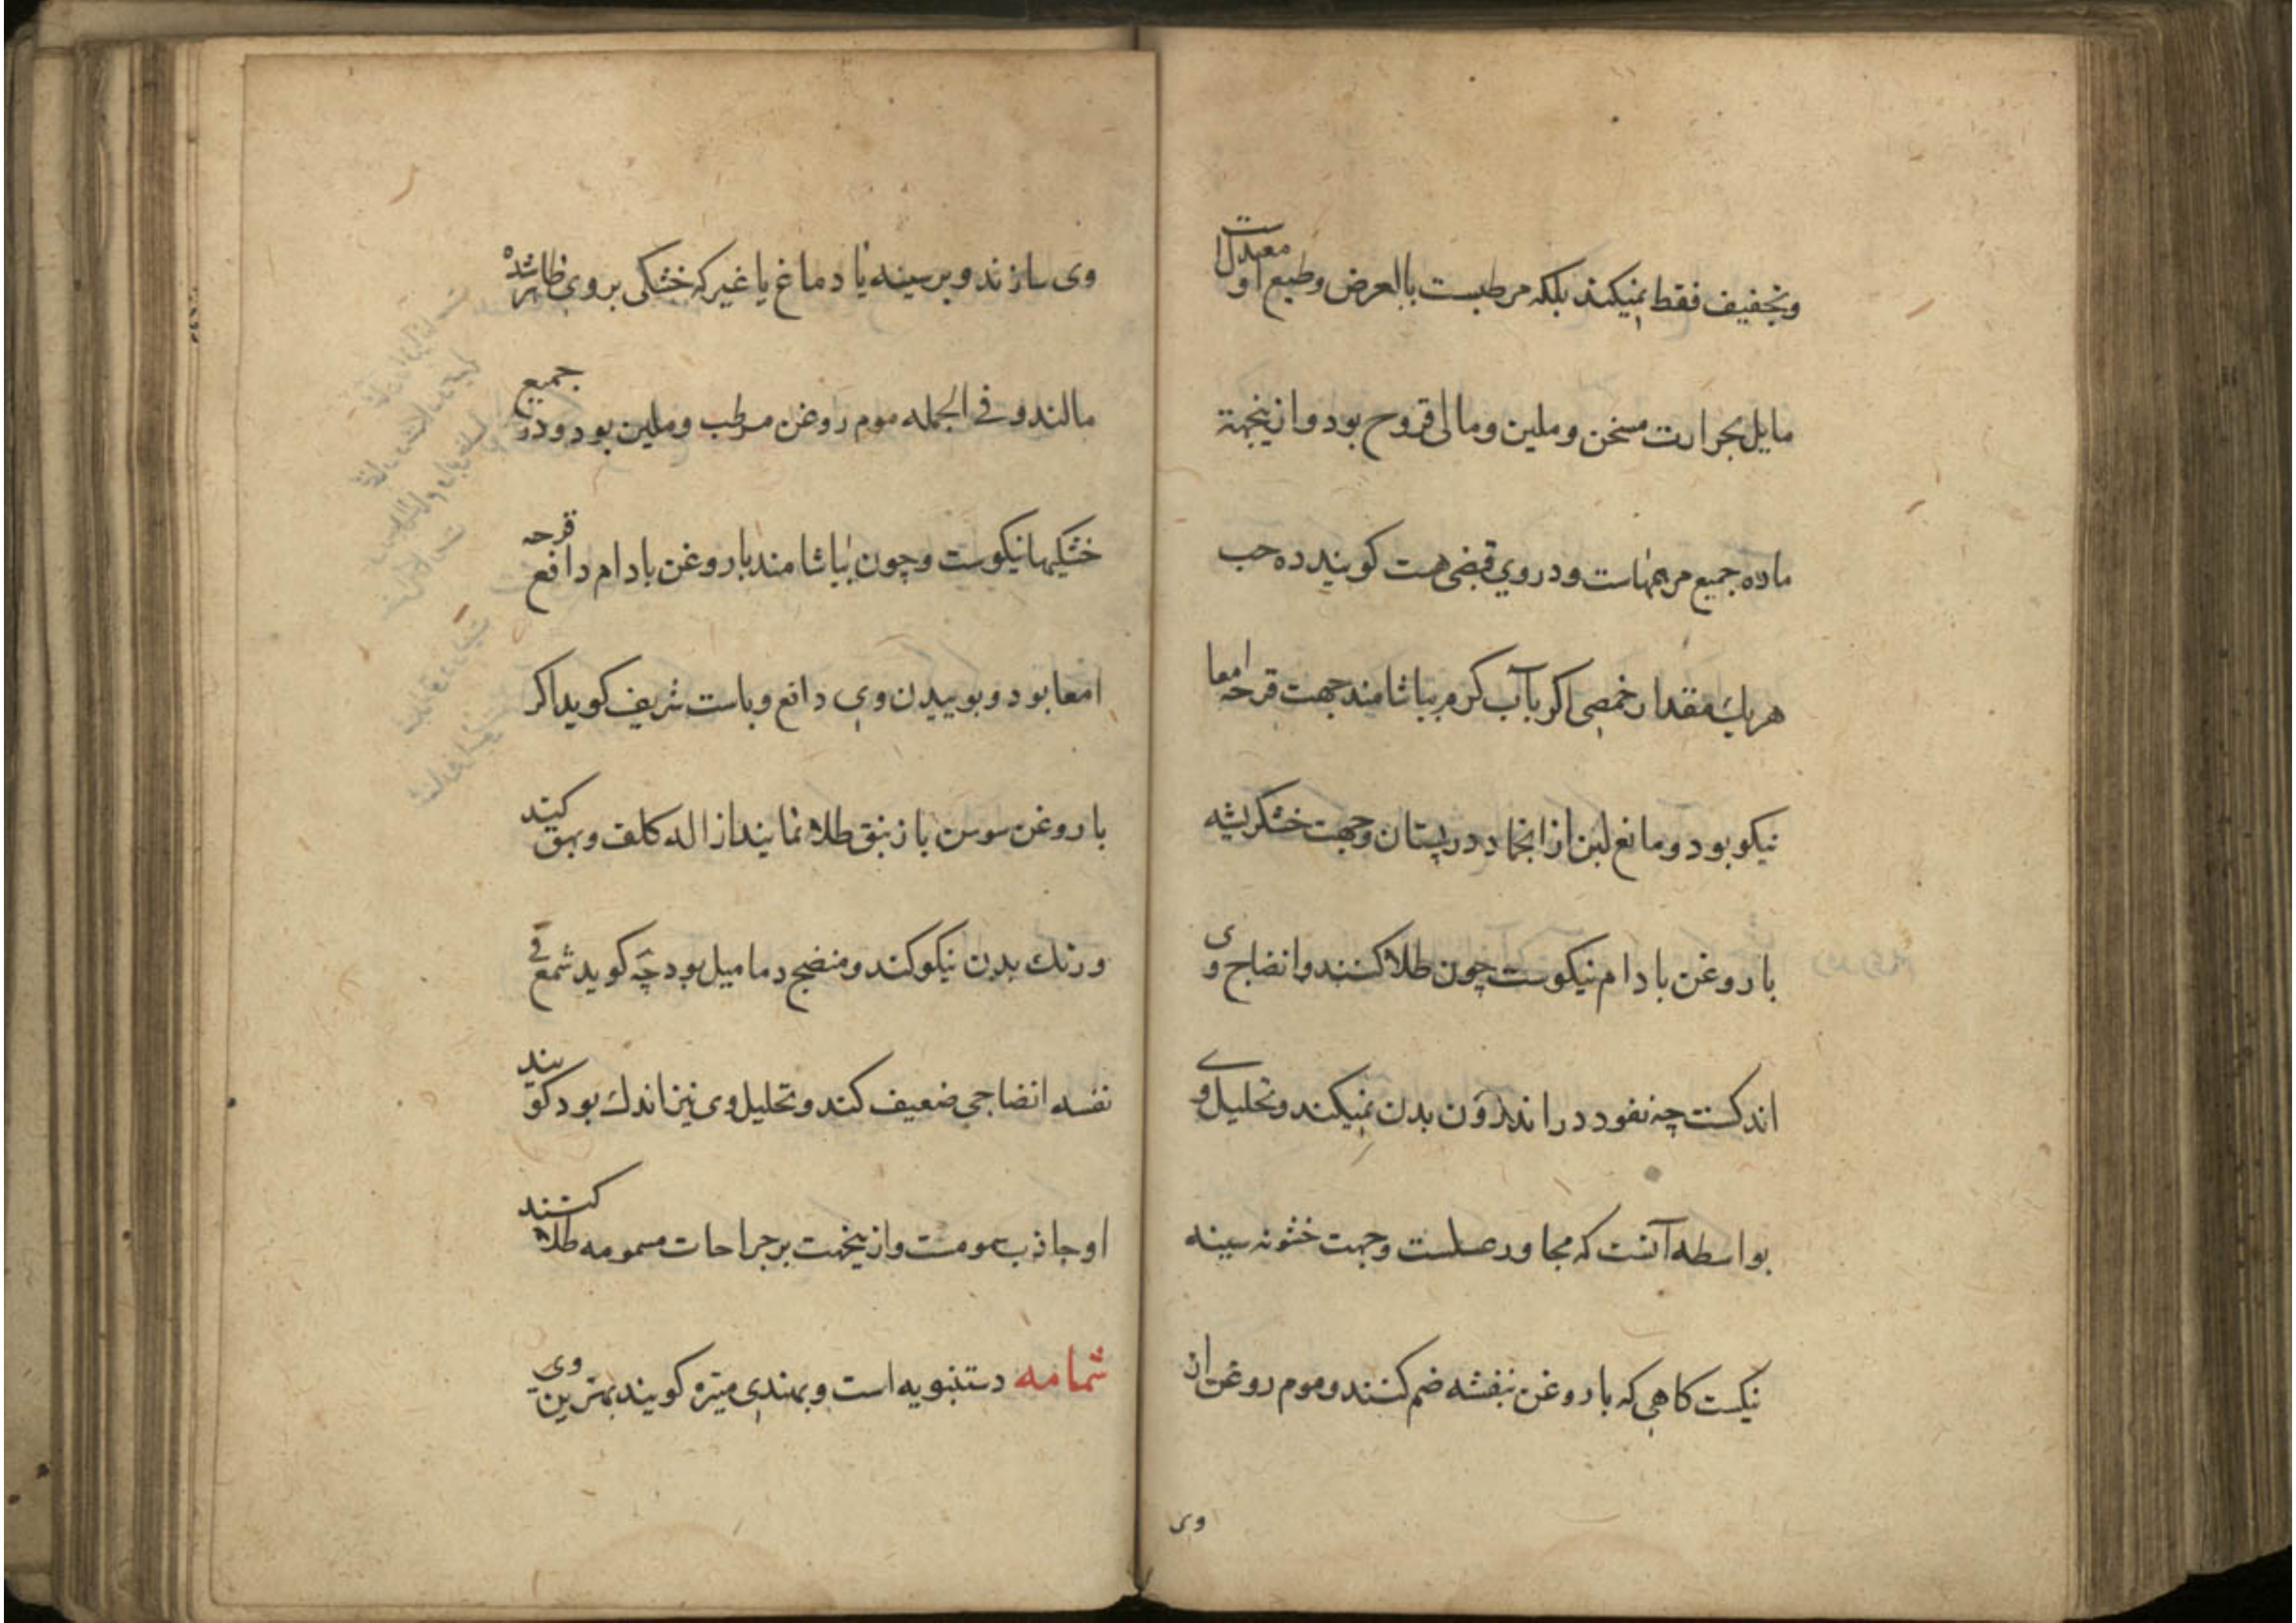 وتجفیف فقط نمیکند بلکه مرطبست بالعرض وطبع او معتدلست
مایل بحرارت مسخن وملین ومالی قروح بود وازینجهة
ماده جمیع مرهمهاست ودروی قبضی هست کویند ده حب
هریك مقدار خمصی اکر باآب کرم بیاشامند جهت قرحه امعا
نیکو بود ومانع لبن از انجماد در پستان وجهت خشکریشه
باروغن بادام نیکوست چون طلا کنند وانضاج وی
اندکست چه نفود در اندرون بدن نمیکند وتحلیل وے
بواسطه آنست که مجاور عسلست وجهت خشونه سینه
نیکست کاهی که باروغن بنفشه ضم کنند وموم روغن ازان
وی
وی سازند وبر سینه یا دماغ یا غیر که خشکی بروی ظاهر شده
مالند وفی الجمله موم روغن مرطب وملین بود ودر جمیع
خشکیها نیکوست وچون بیاشامند باروغن بادام دافع قرحه
امعا بود وبوییدن وی دافع وباست شریف کوید اکر
باروغن سوسن یا زنبق طلا نمایند ازاله کلف وبهق کند
ورنك بدن نیکو کند ومنضج دمامیل بود چه کوید شمع فی
نفسه انضاجی ضعیف کند وتحلیل وی نیز اندك بود کویند
او جاذب سمومست وازینجهت بر جراحات مسمومه طلا کنند
شمامه دستنبویه است وبهندی میتره کویند بهترین وی